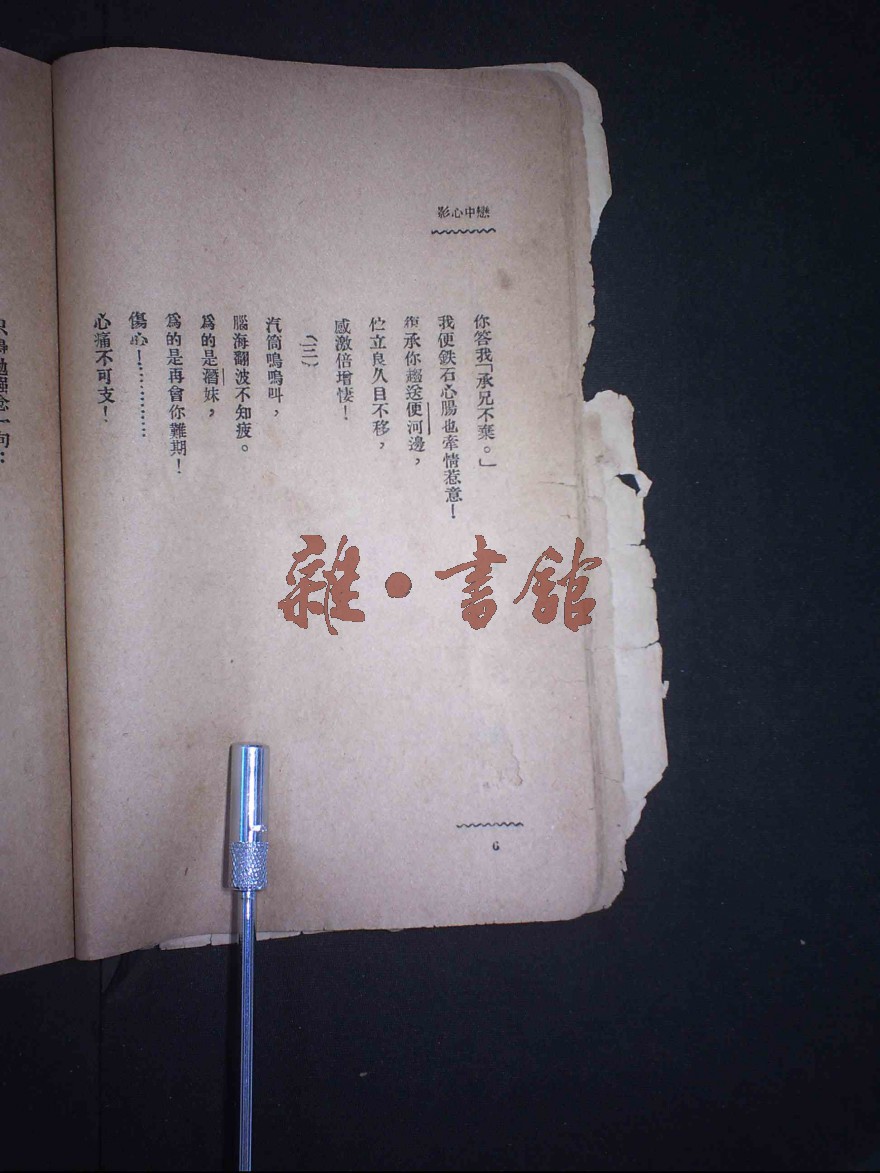 戀中心影
你答我「承兄不棄。」
我便鉄石心腸也牽情惹意!
承你趨送便河邊,
伫立良久目不移,
感激倍增悽!
(三)
汽筒鳴鳴叫,
腦海翻波不知疲。
爲的是潛妹,
爲的是再會你難期!
傷心!…………
心痛不可支!
6
雜·書館